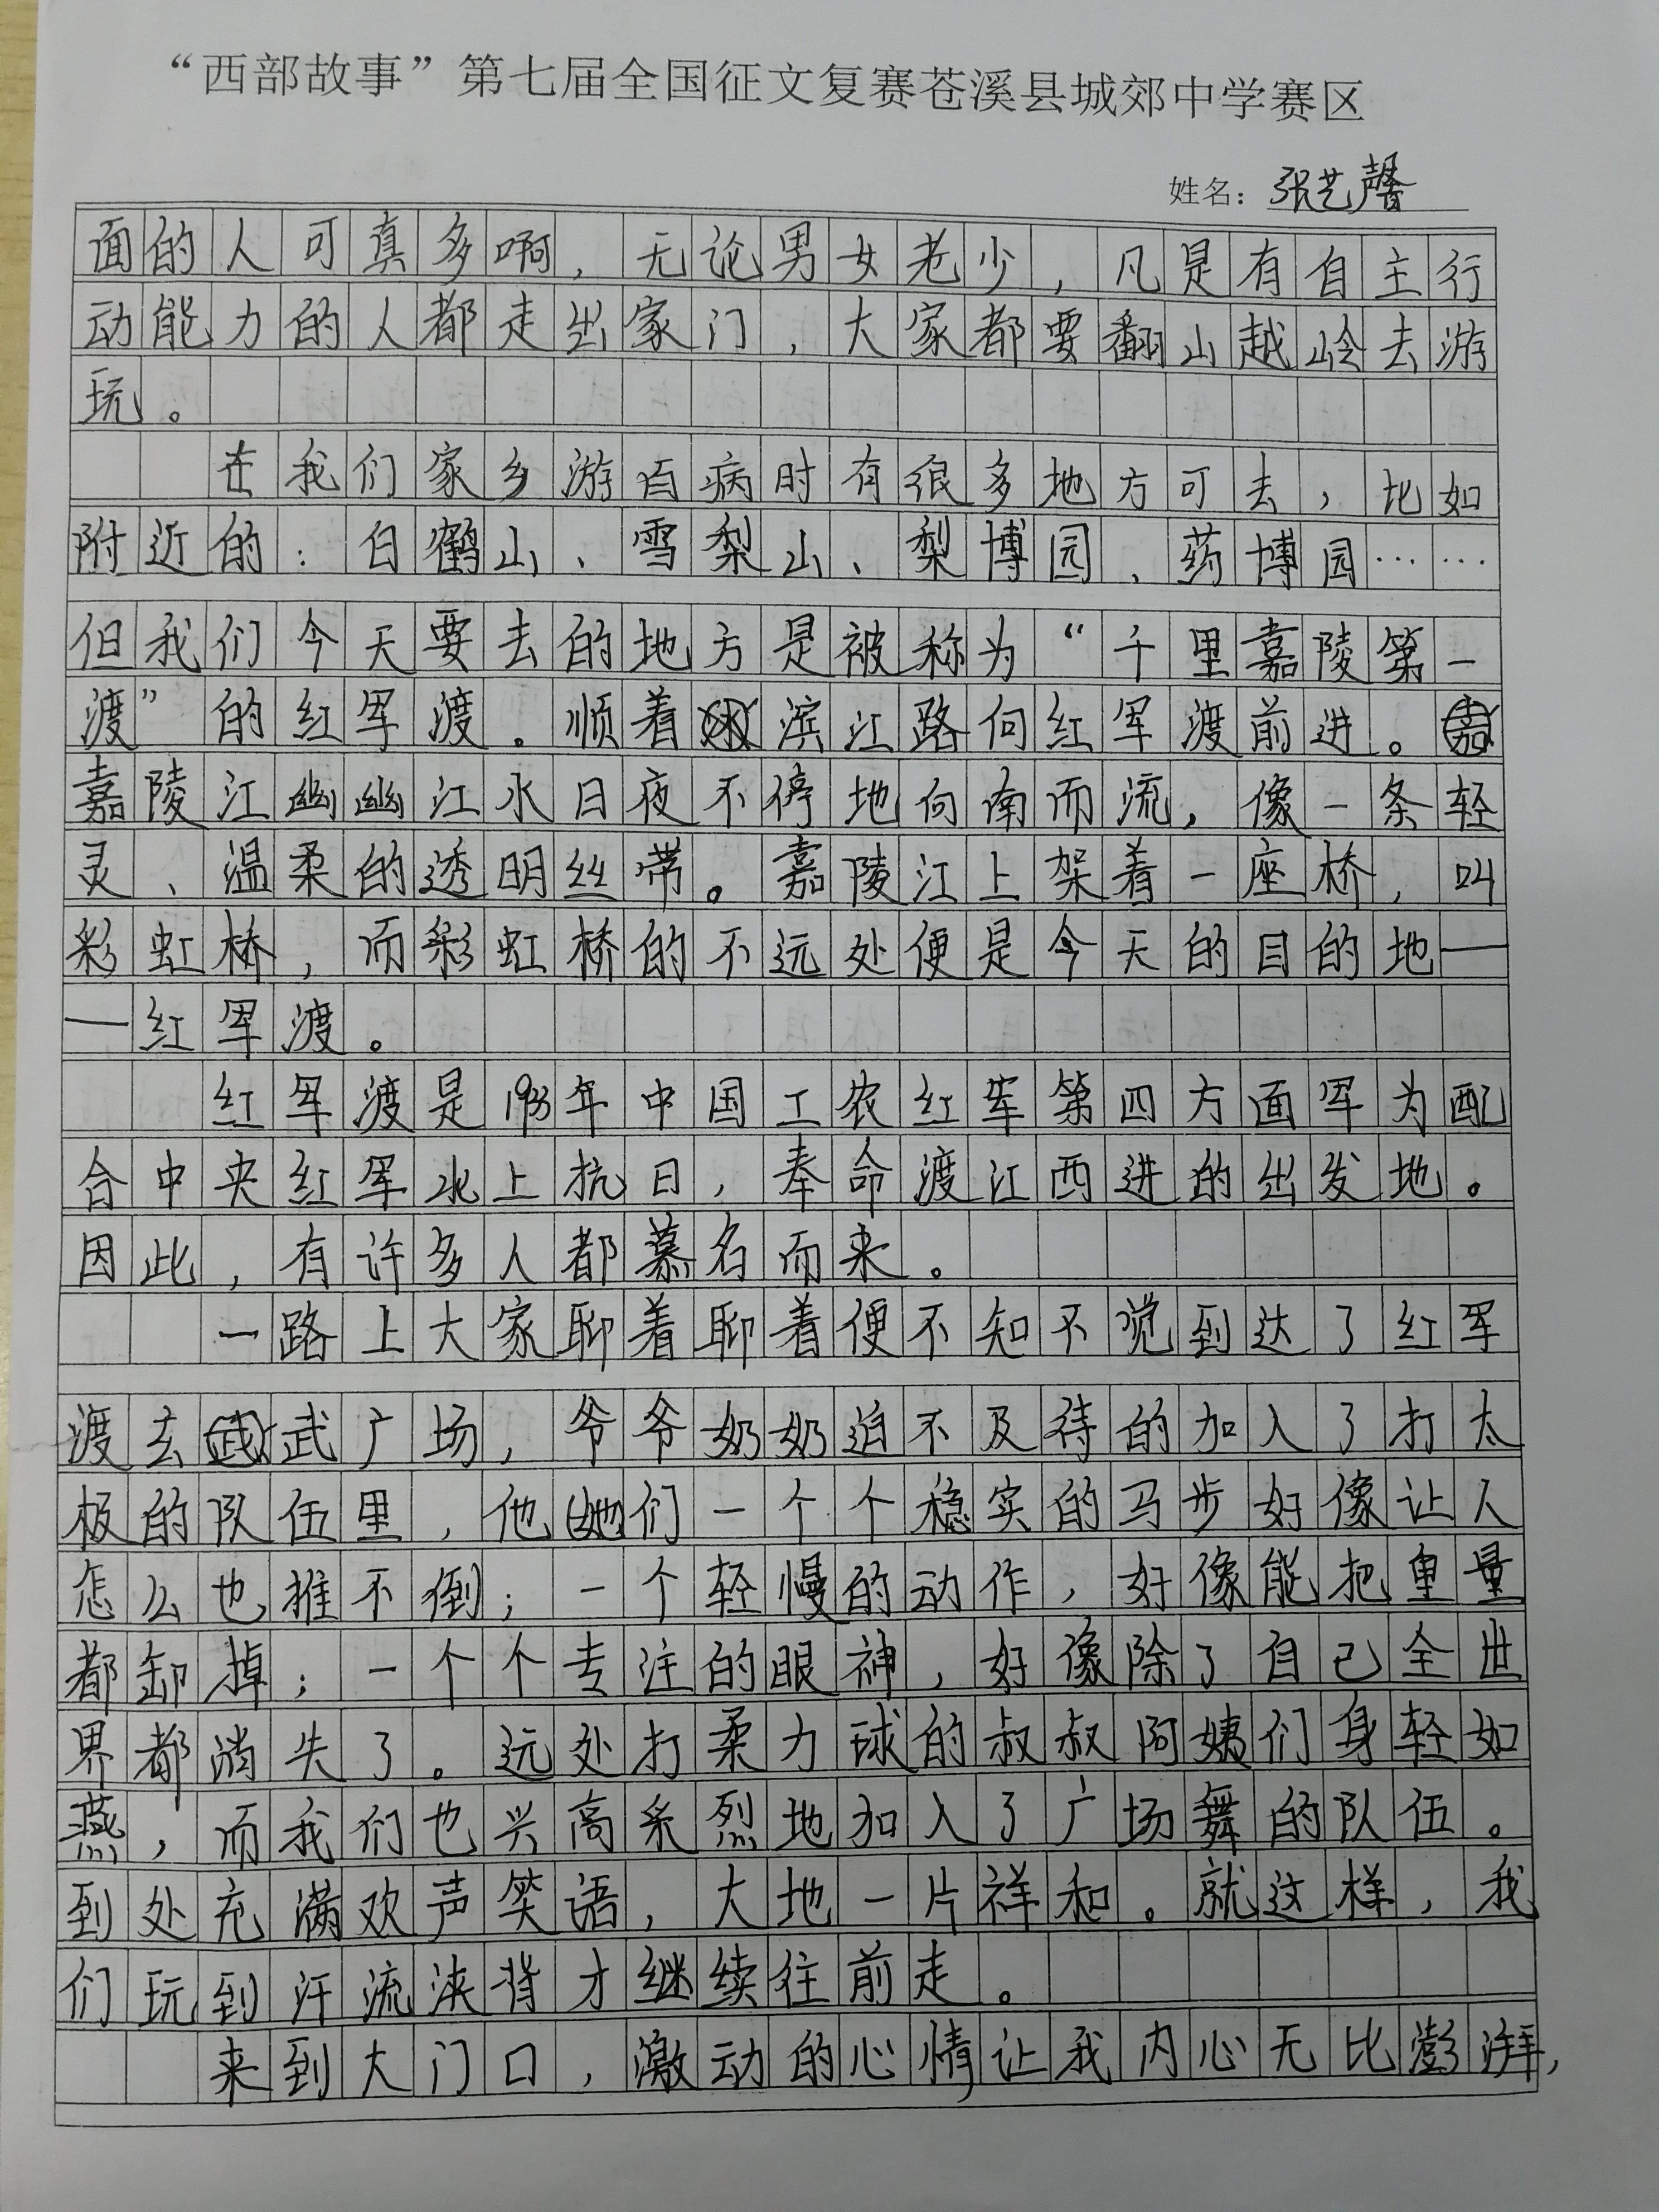 “西部故事”第七届全国征文复赛苍溪县城郊中学赛区
姓名：张艺馨
面的人可真多啊，无论男女老少，凡是有自主行
动能力的人都走出家门，大家都要翻山越岭去游
玩。
在我们家乡游百病时有很多地方可去，比如
附近的：白鹤山、雪梨山、梨博园、药博园……
但我们今天要去的地方是被称为“千里嘉陵第一
渡”的红军渡。顺着滨江路向红军渡前进。
嘉陵江幽幽江水日夜不停地向南而流，像一条轻
灵、温柔的透明丝带。嘉陵江上架着一座桥，叫
彩虹桥，而彩虹桥的不远处便是今天的目的地—
—红军渡。
红军渡是年中国工农红军第四方面军为配
合中央红军北上抗日，奉命渡江西进的出发地。
因此，有许多人都慕名而来。
一路上大家聊着聊着便不知不觉到达了红军
渡玄武广场，爷爷奶奶迫不及待的加入了打太
极的队伍里，他(她)们一个个稳实的马步好像让人
怎么也推不倒；一个轻慢的动作，好像能把重量
都卸掉；一个个专注的眼神，好像除了自己全世
界都消失了。远处打柔力球的叔叔阿姨们身轻如
燕，而我们也兴高采烈地加入了广场舞的队伍。
到处充满欢声笑语，大地一片祥和。就这样，我
们玩到汗流浃背才继续往前走。
来到大门口，激动的心情让我内心无比澎湃，